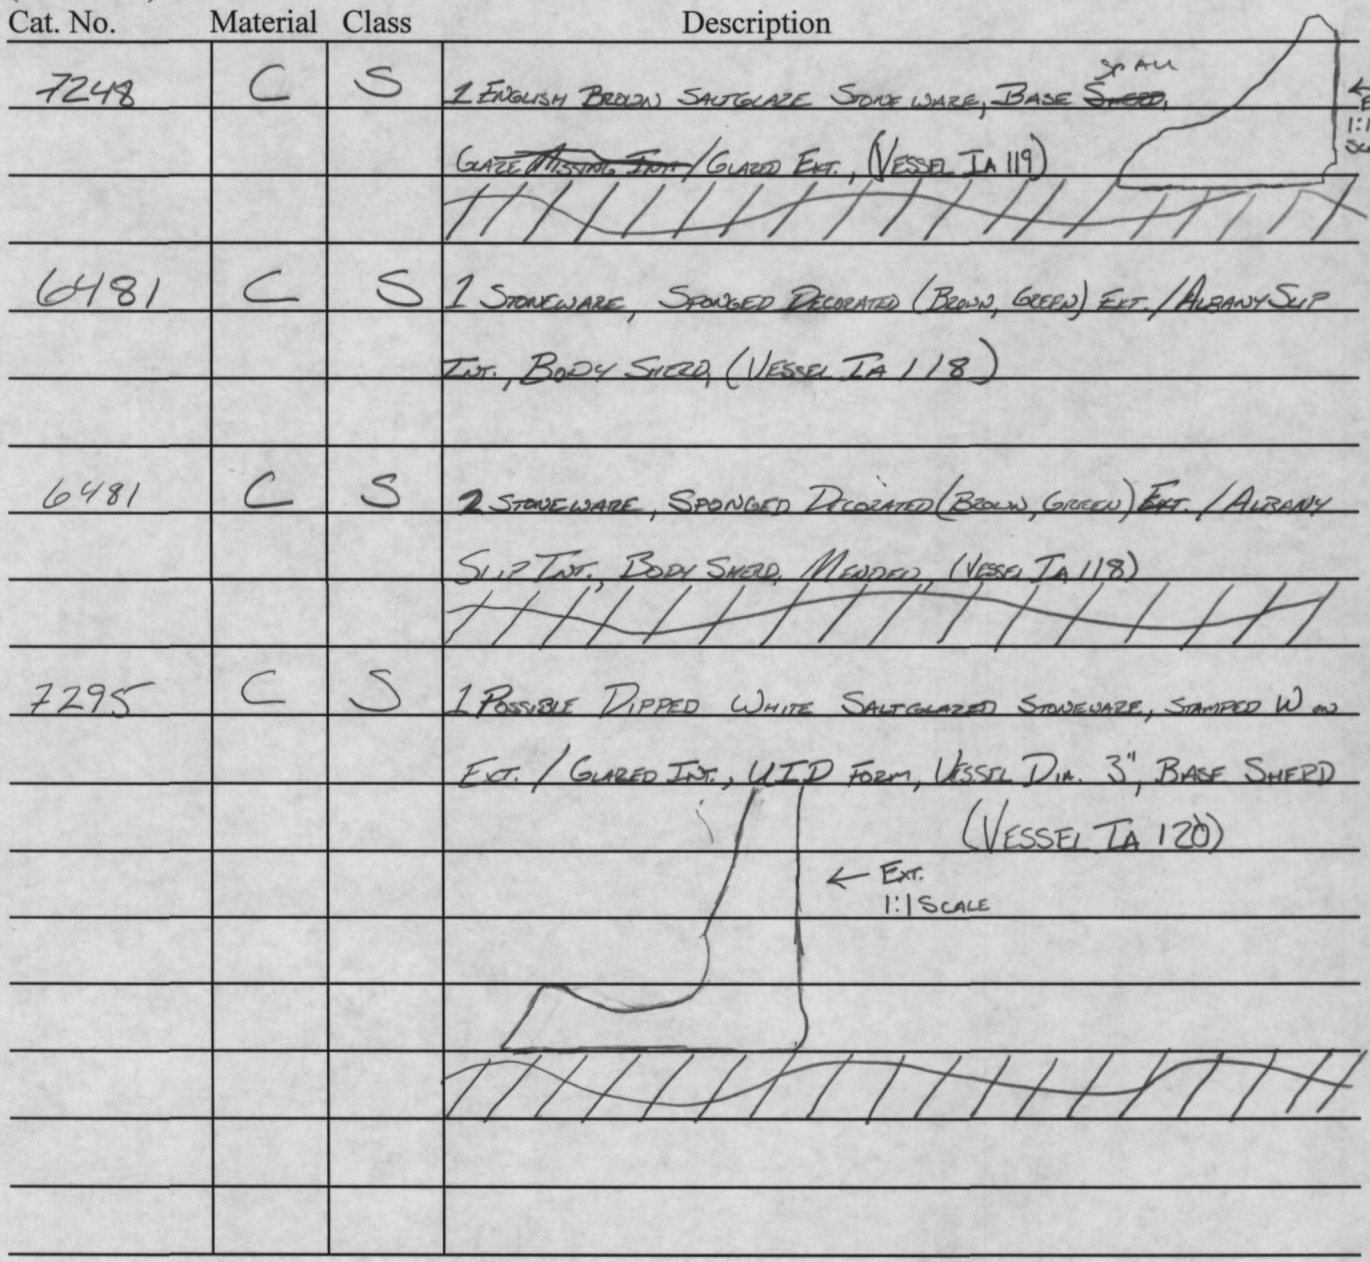 Cat. No. Material Class Description
7248 C S 1 English Brown Saltglaze Stoneware, Base Sherd, Spall
Glaze Missing Int. / Glazed Ext., (Vessel IA 119)
1:1
6481 C S 1 Stoneware, Sponged Decorated (Brown, Green) Ext. / Albany Slip
Int., Body Sherd, (Vessel IA 118)
6481 C S 2 Stoneware, Sponged Decorated (Brown, Green) Ext. / Albany
Slip Int., Body Sherd, Mended, (Vessel IA 118)
7295 C S 1 Possible Dipped White Saltglazed Stoneware, Stamped W on
Ext. / Glazed Int., UID Form, Vessel Dia. 3", Base Sherd
(Vessel IA 120)
← Ext.
1:1 Scale